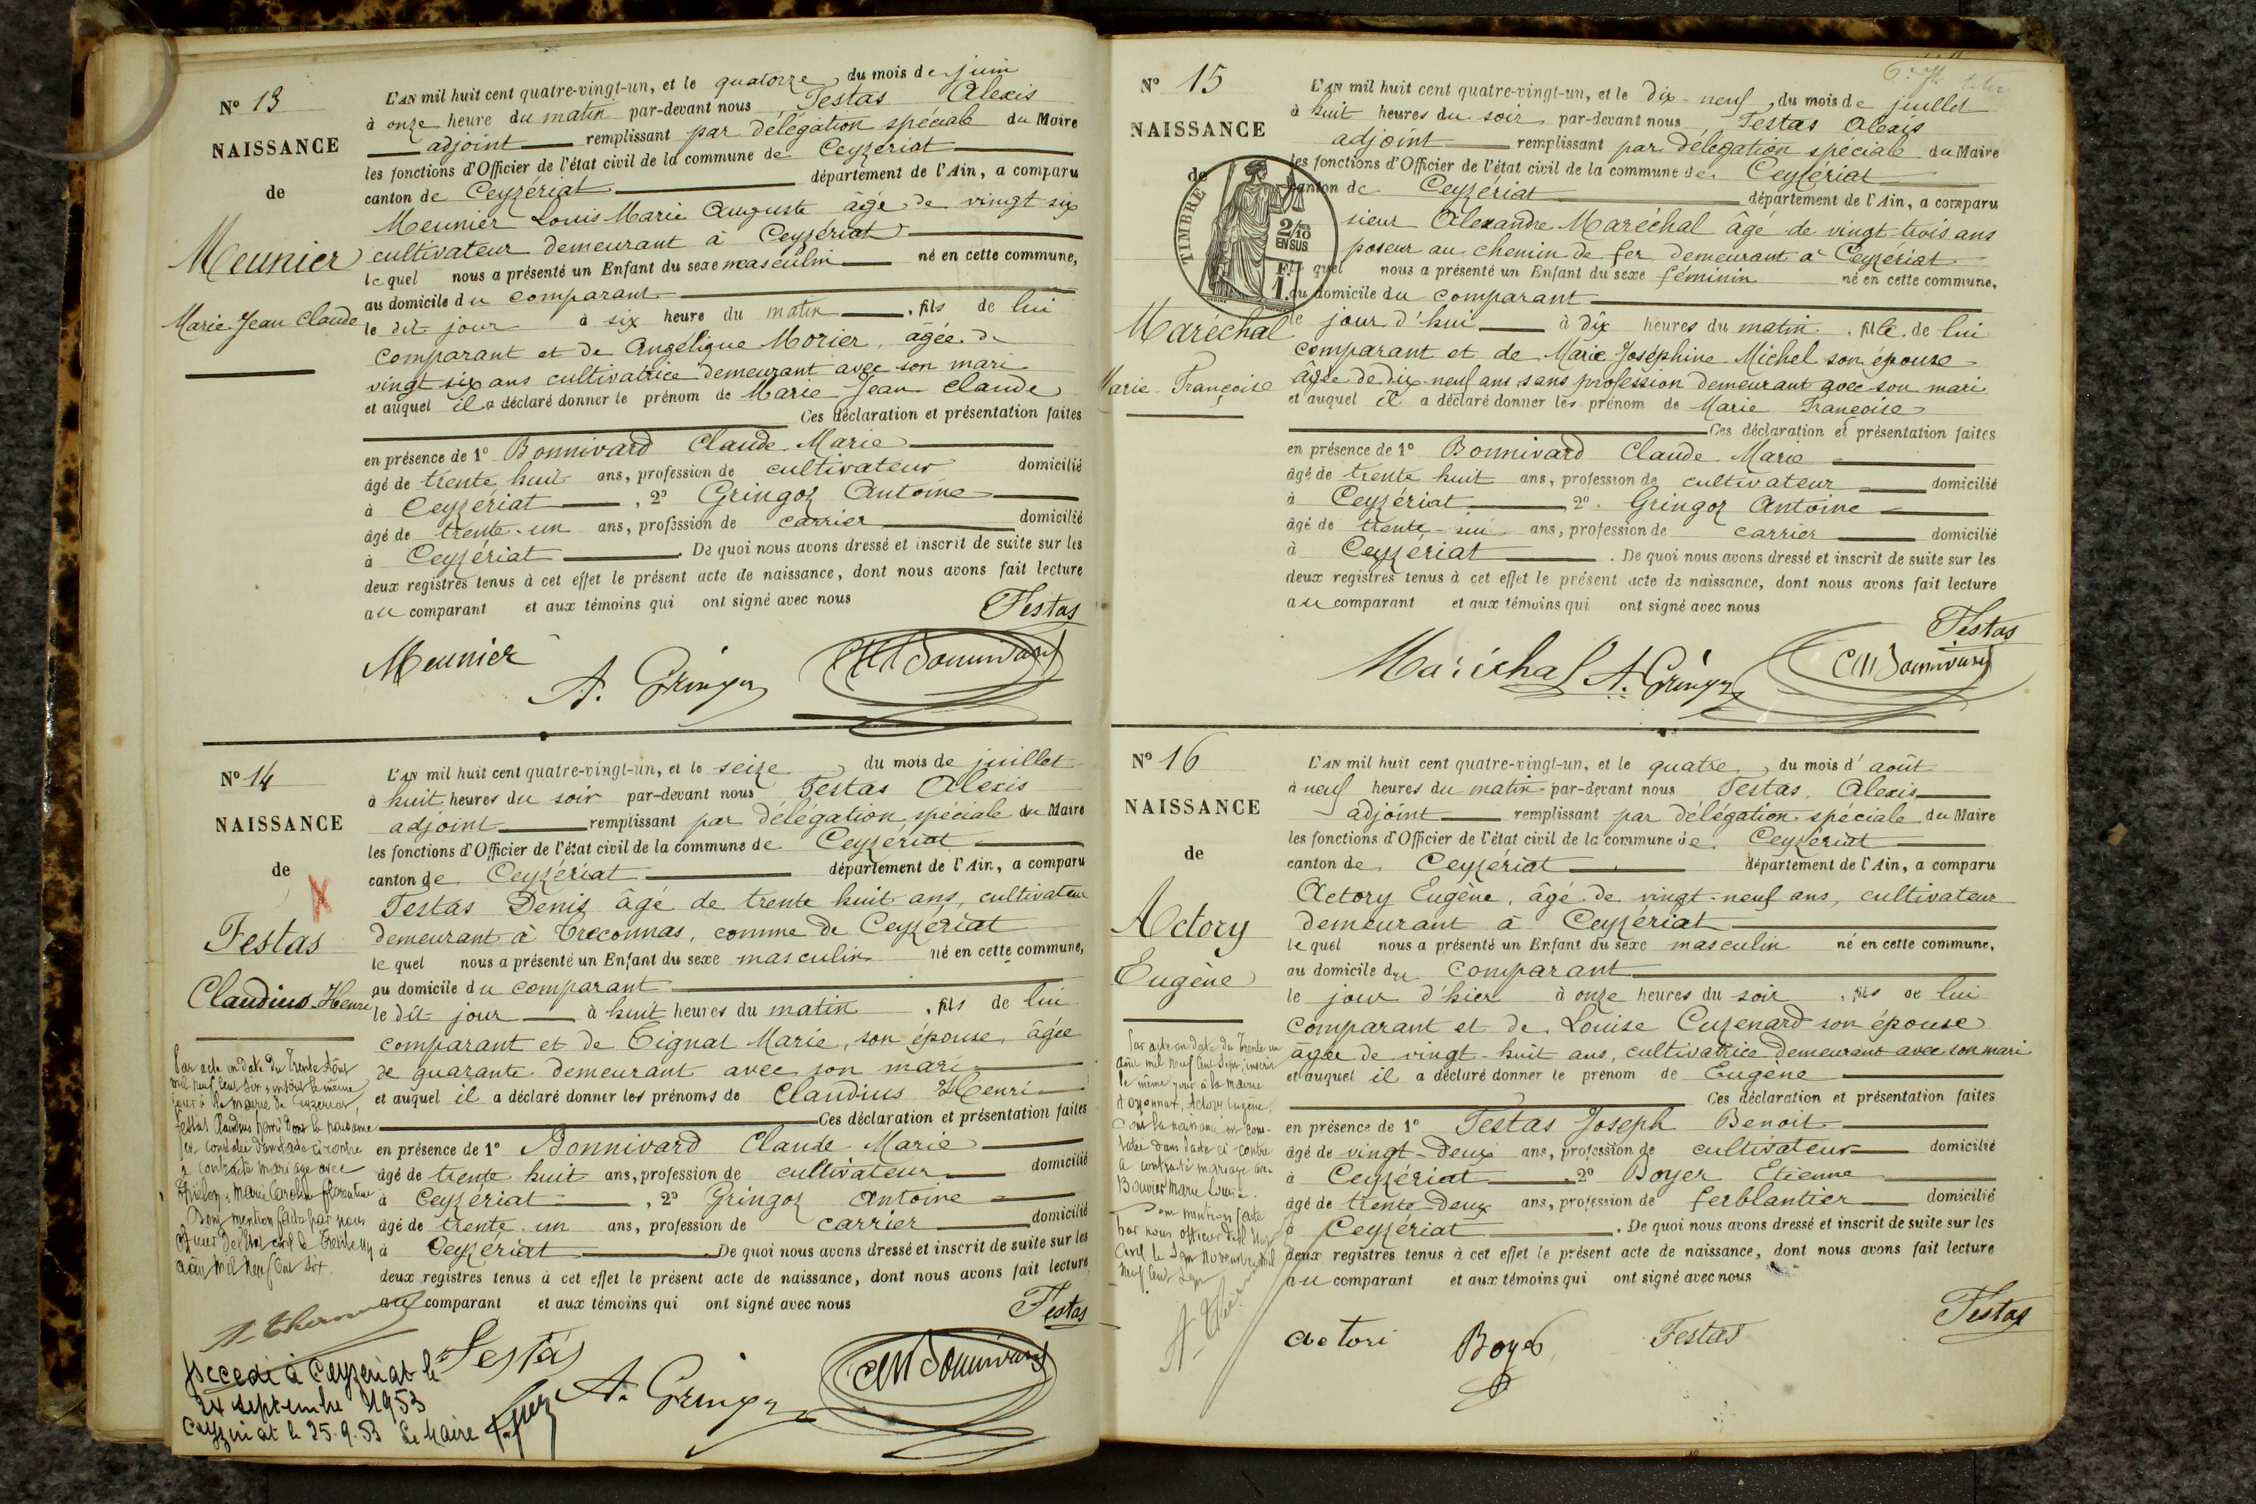 N° 13
NAISSANCE
de
Meunier
Marie Jean Claude
L'AN mil huit cent quatre-vingt-un, et le quatorze du mois de juin
à onze heure du matin par-devant nous Festas Alexis
adjoint remplissant par délégation spéciale du Maire
les fonctions d'Officier de l'état civil de la commune de Ceyzériat
canton de Ceyzériat département de l'Ain, a comparu
Meunier Louis Marie Auguste âgé de vingt six
cultivateur demeurant à Ceyzériat
lequel nous a présenté un Enfant du sexe masculin né en cette commune,
au domicile du comparant
le dit jour à six heure du matin, fils de lui
comparant et de Angélique Morier, âgée de
vingt six ans cultivatrice demeurant avec son mari
et auquel il a déclaré donner le prénom de Marie Jean Claude
Ces déclaration et présentation faites
en présence de 1° Bonnivard Claude Marie
âgé de trente huit ans, profession de cultivateur domicilié
à Ceyzériat, 2° Gringoz Antoine
âgé de trente-un ans, profession de carrier domicilié
à Ceyzériat. De quoi nous avons dressé et inscrit de suite sur les
deux registres tenus à cet effet le présent acte de naissance, dont nous avons fait lecture
au comparant et aux témoins qui ont signé avec nous
Festas
Meunier A. Gringoz CM Bonnivard
N° 14
NAISSANCE
de
X
Festas
Claudius Henri
L'AN mil huit cent quatre-vingt-un, et le seize du mois de juillet
à huit heures du soir par-devant nous Festas Alexis
adjoint remplissant par délégation spéciale du Maire
les fonctions d'Officier de l'état civil de la commune de Ceyzériat
canton de Ceyzériat département de l'Ain, a comparu
Festas Denis âgé de trente huit ans, cultivateur
demeurant à Treconnas, comme de Ceyzériat
lequel nous a présenté un Enfant du sexe masculin né en cette commune,
au domicile du comparant
le dit jour à huit heures du matin, fils de lui
comparant et de Tignat Marie, son épouse, âgée
de quarante demeurant avec son mari
et auquel il a déclaré donner les prénoms de Claudius Henri
Ces déclaration et présentation faites
en présence de 1° Bonnivard Claude Marie
âgé de trente huit ans, profession de cultivateur domicilié
à Ceyzériat, 2° Gringoz Antoine
âgé de trente-un ans, profession de carrier domicilié
à Ceyzériat De quoi nous avons dressé et inscrit de suite sur les
deux registres tenus à cet effet le présent acte de naissance, dont nous avons fait lecture
au comparant et aux témoins qui ont signé avec nous
Festas
Festas A. Gringoz CM Bonnivard
Par acte en date du trente Août
mil neuf cent six, inscrit le même
jour à la mairie de Ceyzériat,
Festas Claudius Henri dont la naissance
est constatée dans l'acte ci-contre
a contracté mariage avec
Marie Caroline Florentine
Dont mention faite par nous
officier de l'état civil le trente un
août mil neuf cent six.
Décédé à Ceyzériat le
24 septembre 1953
Ceyzériat le 25.9.53 Le Maire
N° 15
NAISSANCE
de
TIMBRE
2/10
EN SUS
1 F.
Maréchal
Marie Françoise
L'AN mil huit cent quatre-vingt-un, et le dix-neuf, du mois de juillet
à huit heures du soir par-devant nous Festas Alexis
adjoint remplissant par délégation spéciale du Maire
les fonctions d'Officier de l'état civil de la commune de Ceyzériat
canton de Ceyzériat département de l'Ain, a comparu
sieur Alexandre Maréchal âgé de vingt-trois ans
poseur au chemin de fer demeurant à Ceyzériat
lequel nous a présenté un Enfant du sexe féminin né en cette commune,
au domicile du comparant
le jour d'hui à dix heures du matin, fille de lui
comparant et de Marie Joséphine Michel son épouse
âgée de dix-neuf ans, sans profession demeurant avec son mari
et auquel il a déclaré donner les prénom de Marie Françoise
Ces déclaration et présentation faites
en présence de 1° Bonnivard Claude Marie
âgé de trente huit ans, profession de cultivateur domicilié
à Ceyzériat 2° Gringoz Antoine
âgé de trente-un ans, profession de carrier domicilié
à Ceyzériat. De quoi nous avons dressé et inscrit de suite sur les
deux registres tenus à cet effet le présent acte de naissance, dont nous avons fait lecture
au comparant et aux témoins qui ont signé avec nous
Festas
Maréchal A. Gringoz CM Bonnivard
N° 16
NAISSANCE
de
Actory
Eugène
L'AN mil huit cent quatre-vingt-un, et le quatre, du mois d'août
à neuf heures du matin par-devant nous Festas Alexis
adjoint remplissant par délégation spéciale du Maire
les fonctions d'Officier de l'état civil de la commune de Ceyzériat
canton de Ceyzériat département de l'Ain, a comparu
Actory Eugène, âgé de vingt-neuf ans, cultivateur
demeurant à Ceyzériat
lequel nous a présenté un Enfant du sexe masculin né en cette commune,
au domicile du comparant
le jour d'hier à onze heures du soir, fils de lui
comparant et de Louise Cuzenard son épouse
âgée de vingt-huit ans, cultivatrice demeurant avec son mari
et auquel il a déclaré donner le prénom de Eugène
Ces déclaration et présentation faites
en présence de 1° Festas Joseph Benoit
âgé de vingt-deux ans, profession de cultivateur domicilié
à Ceyzériat, 2° Boyer Etienne
âgé de trente-deux ans, profession de ferblantier domicilié
à Ceyzériat. De quoi nous avons dressé et inscrit de suite sur les
deux registres tenus à cet effet le présent acte de naissance, dont nous avons fait lecture
au comparant et aux témoins qui ont signé avec nous
Festas
actori Boyer Festas
Par acte en date du trente un
août mil neuf cent sept, inscrit
le même jour à la mairie
d'Oyonnax, Actory Eugène,
dont la naissance est cons-
tatée dans l'acte ci-contre
a contracté mariage avec
Bouvier Marie Louise.
Dont mention faite
par nous officier de l'état
civil le novembre mil
neuf cent sept